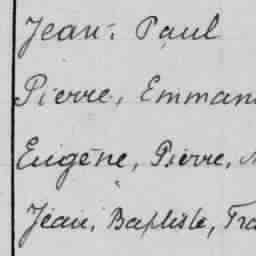 Jean. Paul
Pierre, Emman
Eugène, Pierre,
Jean, Baptiste, Fra